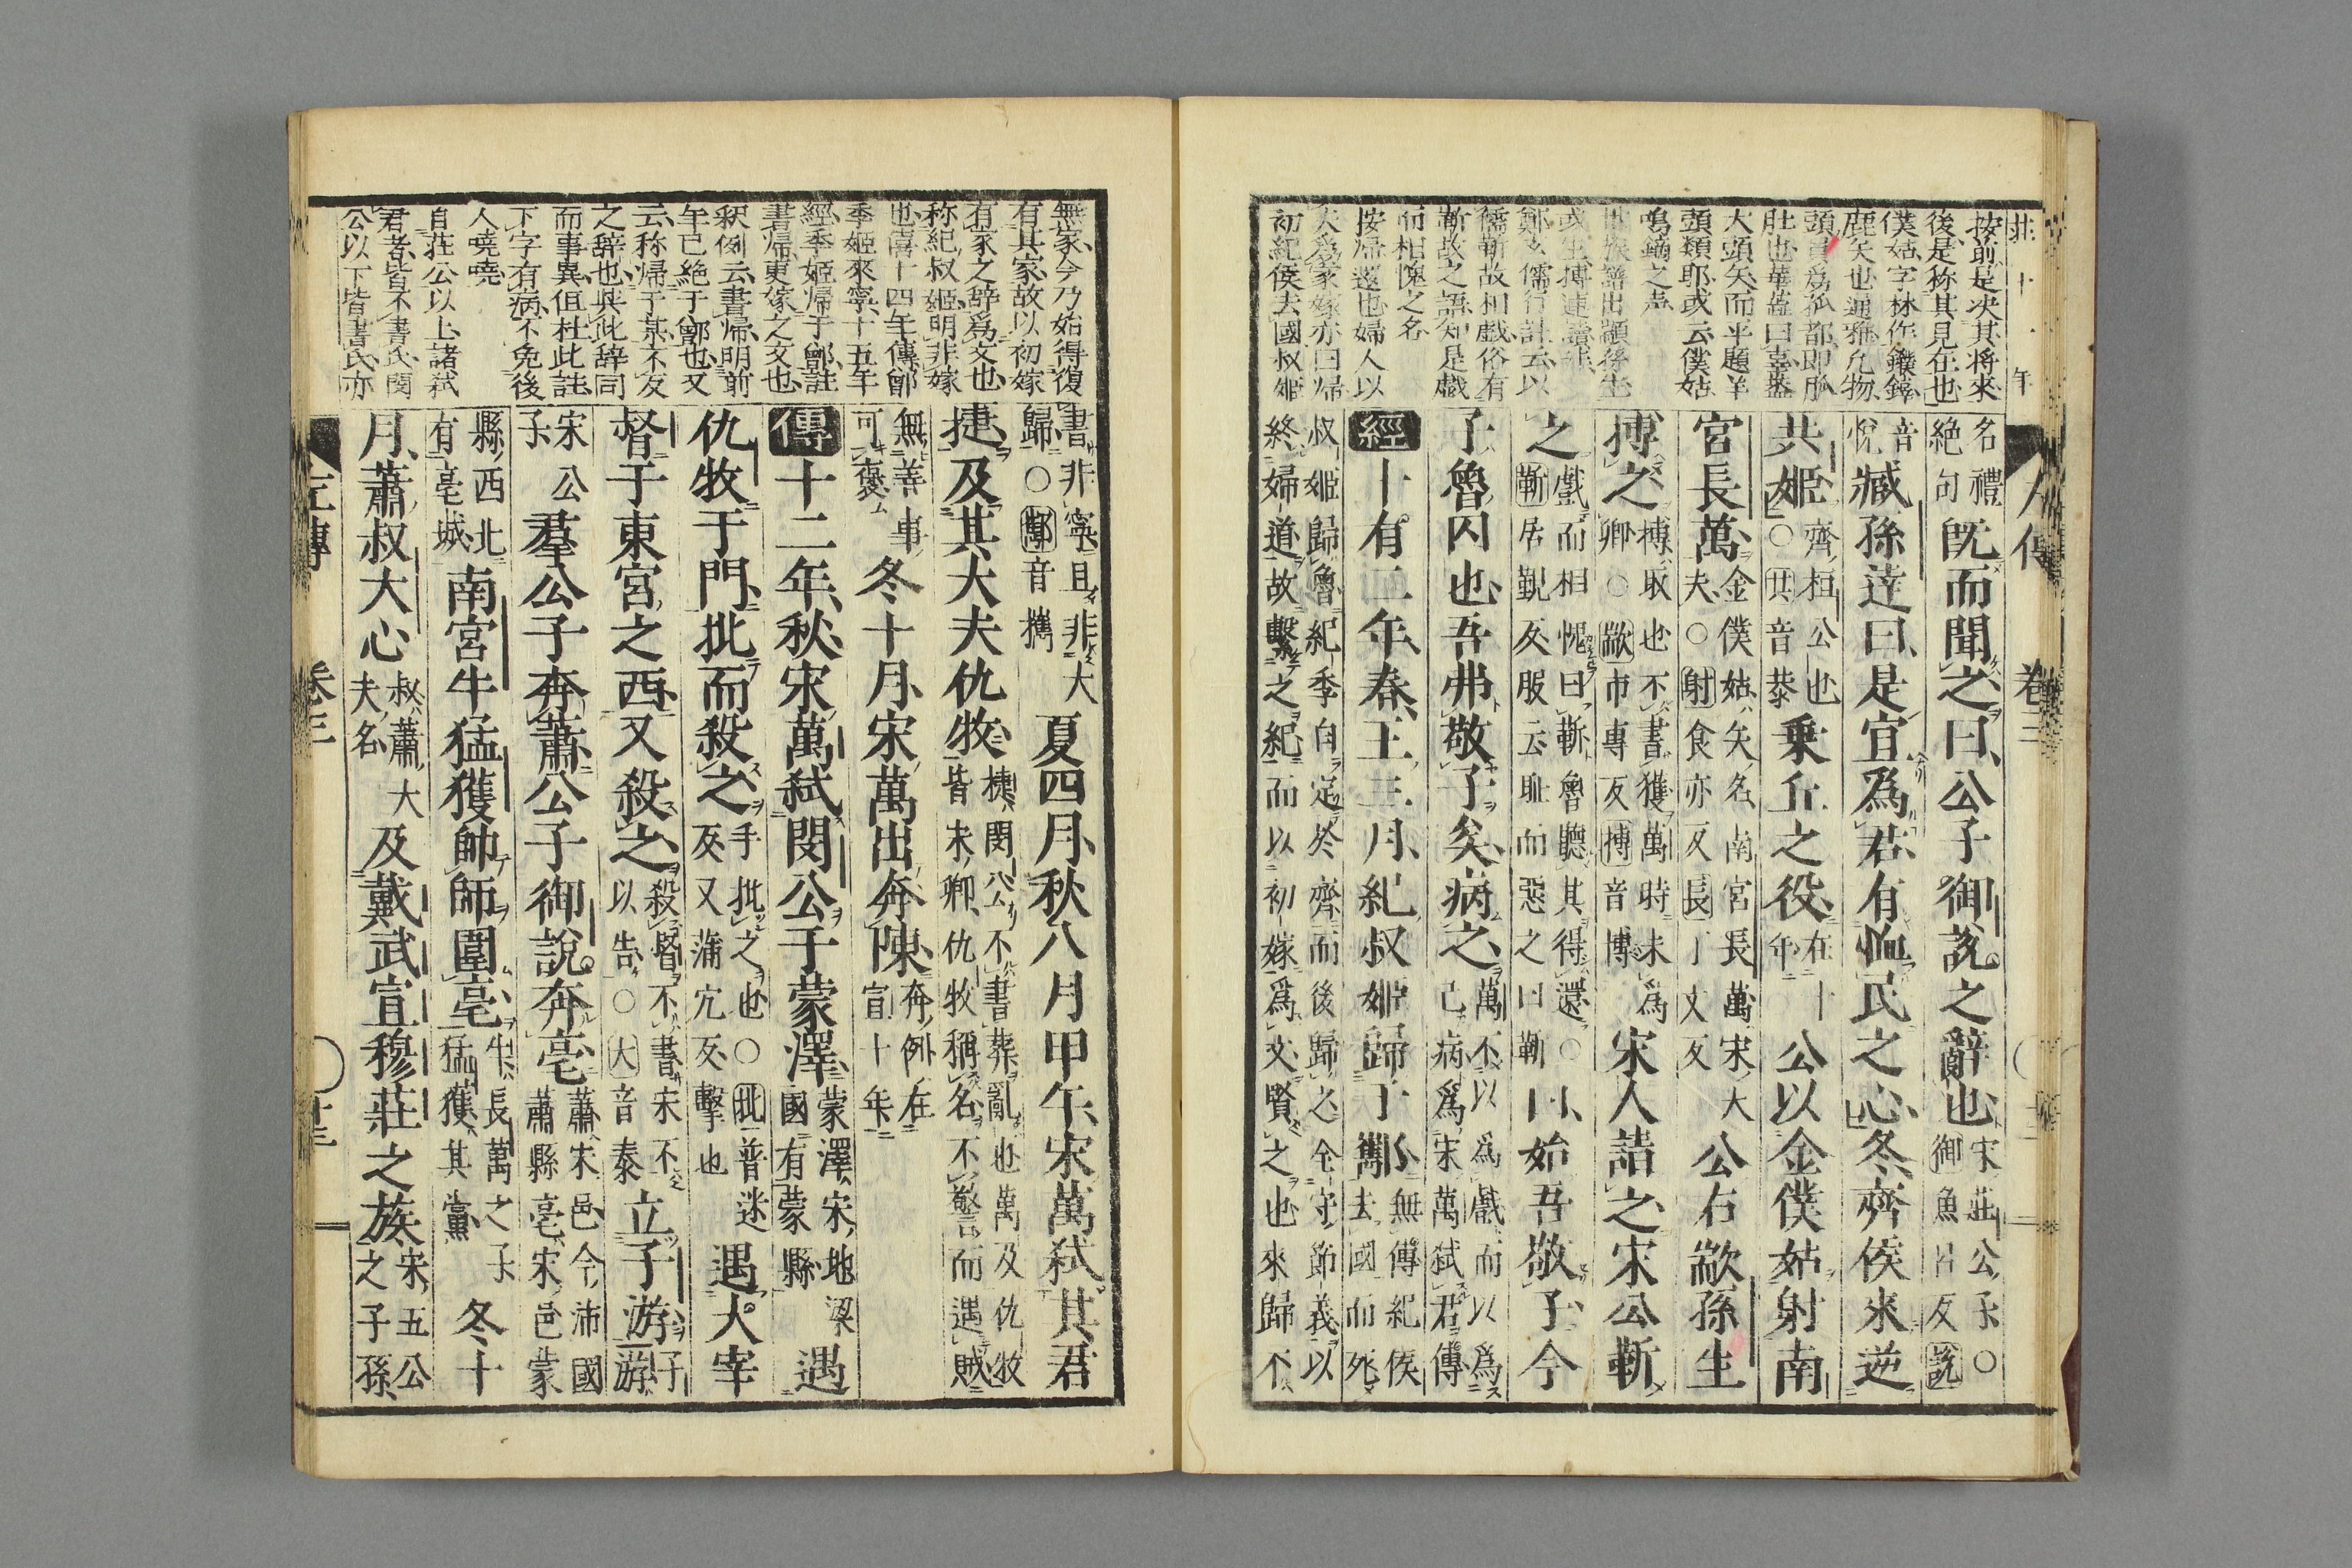 按前是決其将來
後是称其見在也
僕姑字林作鏷鏴
鹿矢也通雅凡物
頭員爲狐都即胍
肚也華蓋曰壺蓋
大頭矢而平題羊
頭類耶或云僕姑
鳴鏑之声
世族譜出顓孫生
或生搏連讀非
鄭玄儒行註云以
儒靳故相戲俗有
靳故之語知是戯
而相愧之名
按帰遂也婦人以
夫爲家嫁亦曰帰
初紀侯去國叔姫
名禮絶句既而聞之曰公子御說之辭也宋莊公子○御魚呂反說
音悅臧孫達曰是宜爲君有恤民之心冬齊侯來逆
共姬齊桓公也○共音恭乗丘之役在十年公以金僕姑射南
宮長萬金僕姑矢名南宮長萬宋大夫○射食亦反長丁丈反公右歂孫生
搏之搏取也不書獲萬時未爲卿○歂市專反搏音博宋人請之宋公靳
之戲而相愧曰靳魯聽其得還○靳居覲反服云恥而惡之曰靳曰始吾敬子今
子魯囚也吾弗敬子矣病之萬不以爲戲而以爲己病爲宋萬弒君傳
經十有二年春王三月紀叔姬歸于酅無傳紀侯去國而死
叔姬歸魯紀季自定於齊而後歸之全守節義以終婦道故繫之紀而以初嫁爲文賢之也來歸不
左傳 卷三
無家今乃始得復
有其家故以初嫁
有家之辞爲文也
称紀叔姫明非嫁
也僖十四年傳鄫
季姬來寧十五年
經季姫帰于鄫註
書帰更嫁之文也
釈例云書帰明前
年已絶于鄫也又
云称帰于某不反
之辞也與此辞同
而事異但杜此註
下字有病不免後
人暁暁
自荘公以上諸弑
君者皆不書氏閔
公以下皆書氏亦
書非寧且非大歸○酅音攜夏四月秋八月甲午宋萬弒其君
捷及其大夫仇牧捷閔公不書葬亂也萬及仇牧皆宋卿仇牧稱名不警而遇賊
無善事可褒冬十月宋萬出奔陳奔例在宣十年
傳十二年秋宋萬弒閔公于蒙澤蒙澤宋地梁國有蒙縣遇
仇牧于門批而殺之手批之也○批普迷反又蒲穴反擊也遇大宰
督于東宮之西又殺之殺督不書宋不以告○大音泰立子游子游
宋公子羣公子奔蕭公子御說奔亳蕭宋邑今沛國蕭縣亳宋邑蒙
縣西北有亳城南宮牛猛獲帥師圍亳牛長萬之子猛獲其黨冬十
月蕭叔大心叔蕭大夫名及戴武宣穆莊之族宋五公之子孫
左傳 卷三